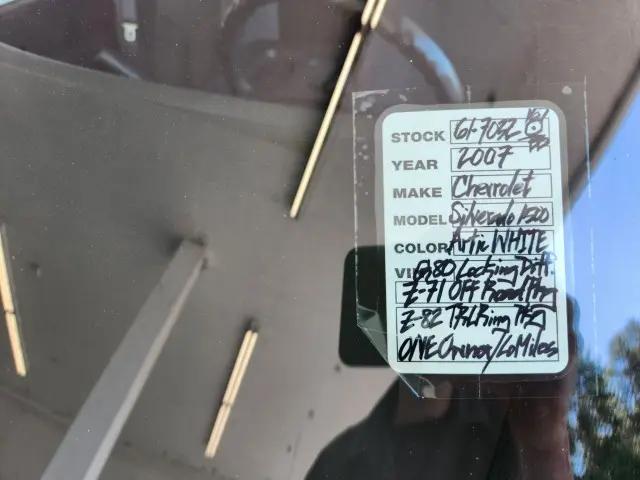 STOCK 61-7032
YEAR 2007
MAKE Chevrolet
MODEL Silverado 1500
COLOR Artic WHITE
VIN G80 Locking Diff.
Z-71 OFF Road Pkg
Z-82 TRLRing PKG
ONE Owner/Lo Miles